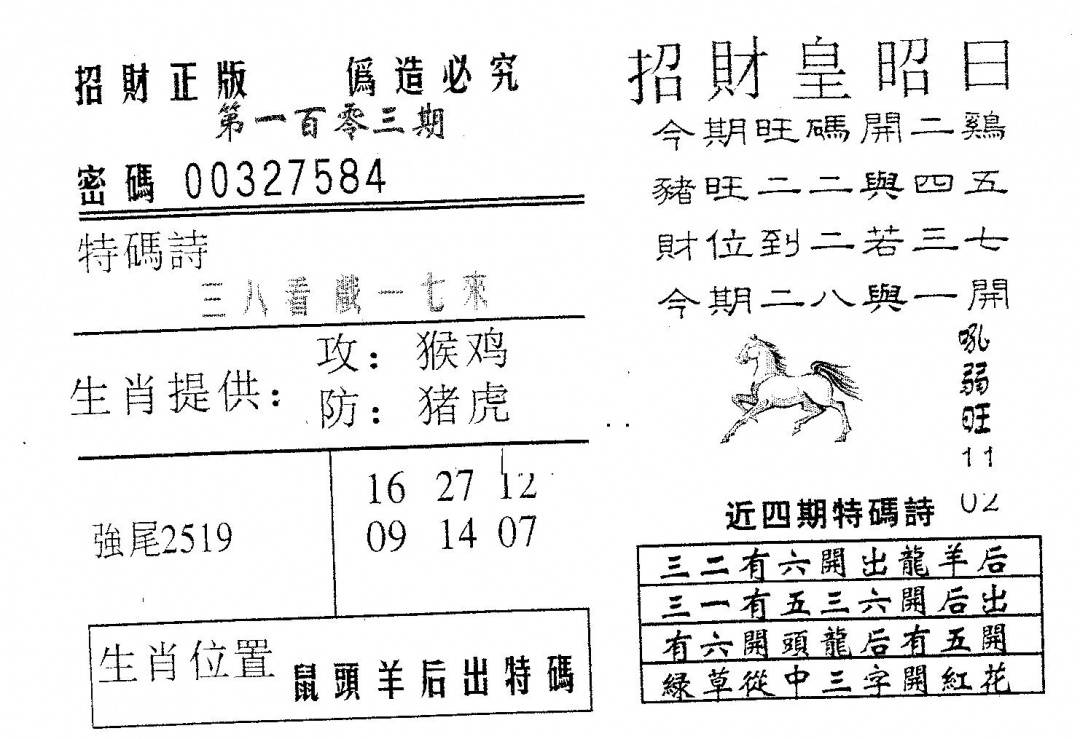 招財正版 僞造必究
第一百零三期
密碼 00327584
特碼詩
三八看戲一七來
生肖提供：
攻：猴鸡
防：猪虎
強尾2519
16 27 12
09 14 07
生肖位置 鼠頭羊后出特碼
招財皇昭日
今期旺碼開二鷄
豬旺二二與四五
財位到二若三七
今期二八與一開
吼弱旺11 02
近四期特碼詩
三二有六開出龍羊后
三一有五三六開后出
有六開頭龍后有五開
綠草從中三字開紅花